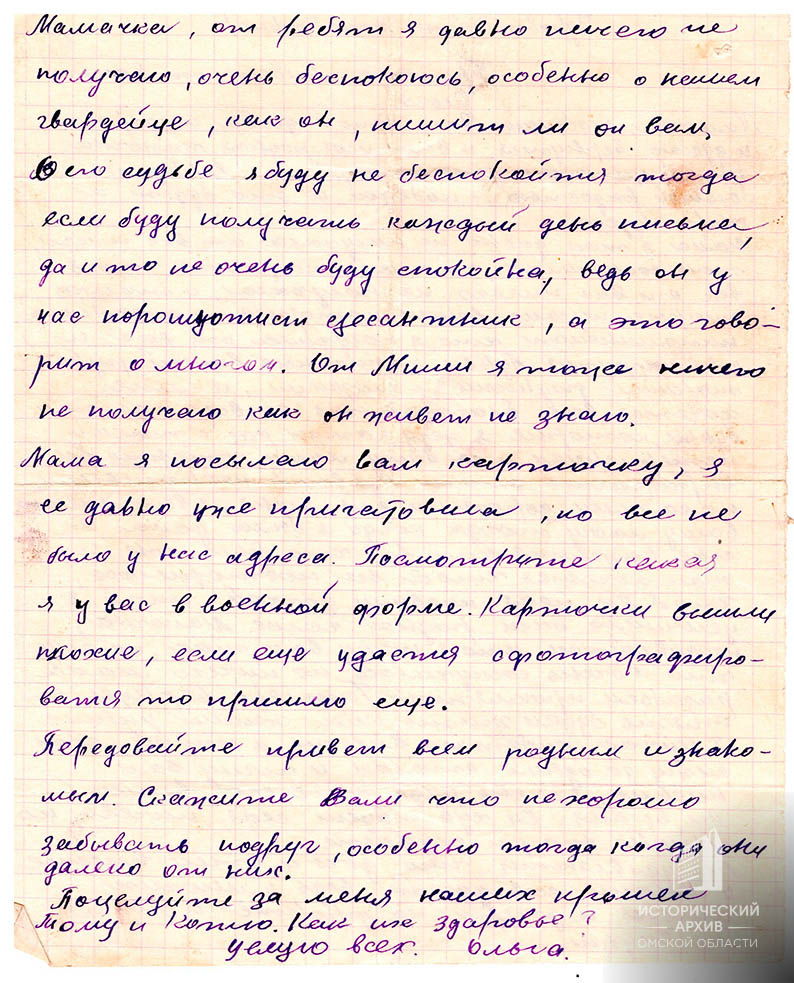 Мамачка, от ребят я давно ничего не
получаю, очень беспокоюсь, особенно о нашем
гвардейце, как он, пишит ли он вам,
О его судьбе я буду не беспокойтя тогда
если буду получать каждый день письма,
да и то не очень буду спокойна, ведь он у
нас порошютист десантник, а это гово-
рит о многом. От Миши я тоже ничего
не получаю как он живет не знаю.
Мама я посылаю вам карточку, я
ее давно уже пригатовила, но все не
было у нас адреса. Посмотрите какая
я у вас в военной форме. Карточки вышли
плохие, если еще удается сфотографиро-
ватя то пришлю еще.
Передовайте привет всем родным и знако-
мым. Скажите Вали что не хорошо
забывать подруг, особенно тогда когда они
далеко от них.
Поцелуйте за меня наших крошек
Тому и Катю. Как их здаровье?
Целую всех. Ольга.
ИСТОРИЧЕСКИЙ
АРХИВ
ОМСКОЙ ОБЛАСТИ